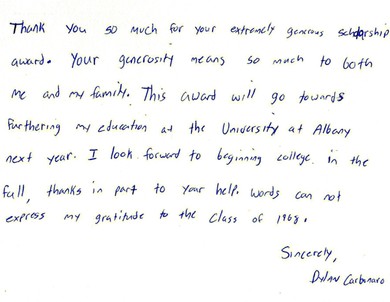 Thank you so much for your extremely generous scholarship
award. Your generosity means so much to both
me and my family. This award will go towards
furthering my education at the University at Albany
next year. I look forward to beginning college in the
fall, thanks in part to your help. Words can not
express my gratitude to the Class of 1968.
Sincerely,
Dylan Carbonaro